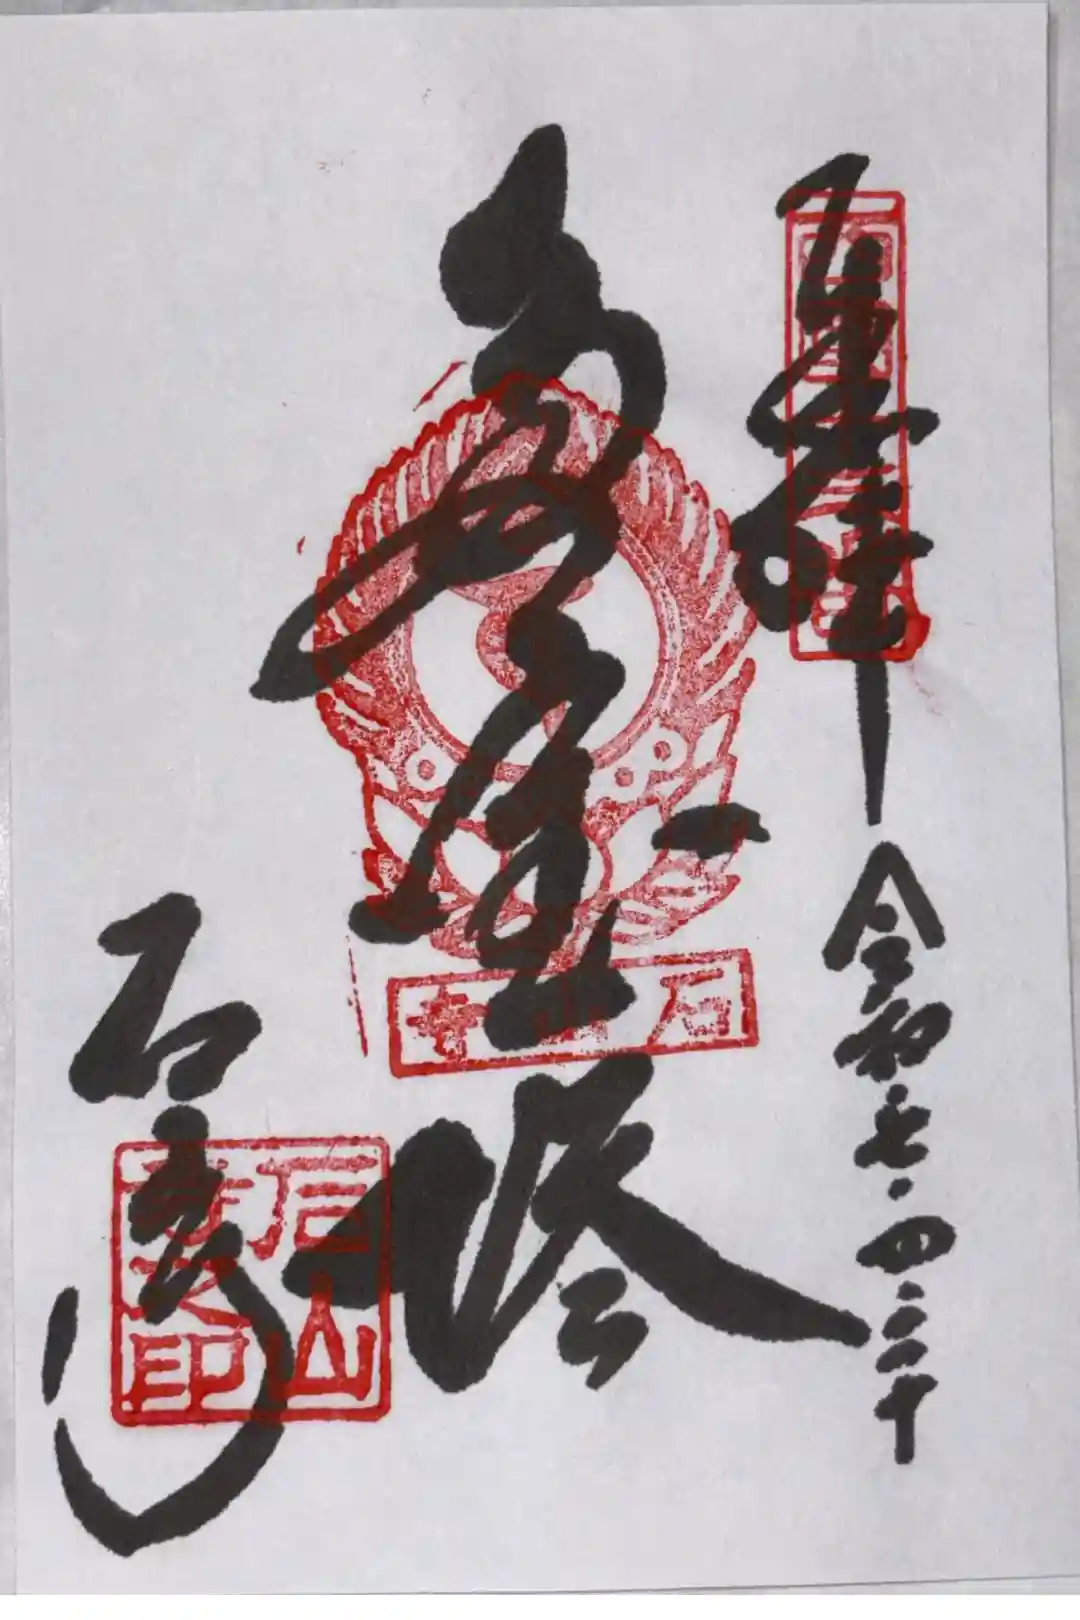 奉拝
令和七・四・二十
多宝塔
石山寺
石山寺
石山寺之印